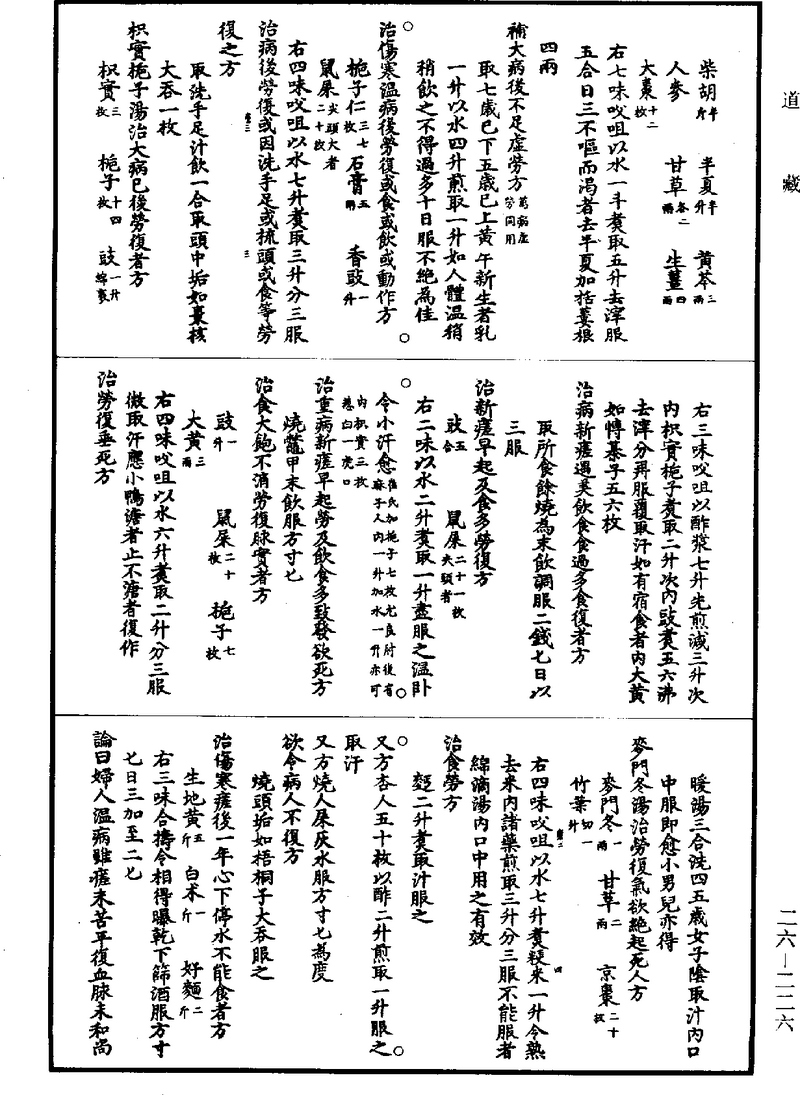 道藏
柴胡半斤 半夏半升 黃芩三兩
人參 甘草各二兩 生薑四兩
大棗十二枚
右七味㕮咀以水一斗煑取五升去滓服
五合日三不嘔而渴者去半夏加括蔞根
四兩
補大病後不足虛勞方萬病虛勞同用
取七歲已下五歲已上黃午新生者乳
一升以水四升煎取一升如人體温稍
稍飲之不得過多十日服不絕為佳
○治傷寒温病後勞復或食或飲或動作方○
梔子仁三七枚 石膏五兩 香豉一升
鼠屎尖頭大者二十枚
右四味㕮咀以水七升煑取三升分三服
治病後勞復或因洗手足或梳頭或食等勞
復之方
取洗手足汁飲一合取頭中垢如棗核
大吞一枚
枳實梔子湯治大病已後勞復者方
枳實三枚 梔子十四枚 豉一升綿裹
右三味㕮咀以酢漿七升先煎減三升次
内枳實梔子煑取二升次内豉煑五六沸
去滓分再服覆取汗如有宿食者内大黃
如愽棊子五六枚
治病新瘥遇美飲食食過多食復者方
取所食餘燒為末飲調服二錢七日以
三服
治新瘥早起及食多勞復方
豉五合 鼠屎二十一枚尖頭者
右二味以水二升煑取一升盡服之温卧
○令小汗愈崔氏加梔子七枚尤良肘後有麻子人内一升加水一升亦可○
内枳實三枚葱白一虎口
治重病新瘥早起勞及飲食多致發欲死方
燒鼈甲末飲服方寸匕
治食大飽不消勞復脉實者方
豉一升 鼠屎二十枚 梔子七枚
大黃三兩
右四味㕮咀以水六升煑取二升分三服
微取汗應小鴨溏者止不溏者復作
治勞復垂死方
暖湯三合洗四五歲女子陰取汁内口
中服即愈小男兒亦得
麥門冬湯治勞復氣欲絕起死人方
麥門冬一兩 甘草二兩 京棗二十枚
竹葉切一升
右四味㕮咀以水七升煑粳米一升令熟
去米内諸藥煎取三升分三服不能服者
綿滴湯内口中用之有效
治食勞方
麪二升煑取汁服之
○又方杏人五十枚以酢二升煎取一升服之○
取汗
又方燒人屎灰水服方寸匕為度
欲令病人不復方
燒頭垢如梧桐子大吞服之
治傷寒瘥後一年心下停水不能食者方
生地黃五斤 白术一斤 好麵二斤
右三味合擣令相得曝乾下篩酒服方寸
匕日三加至二匕
論曰婦人温病雖瘥未苦平復血脉未和尚
二六—二二六